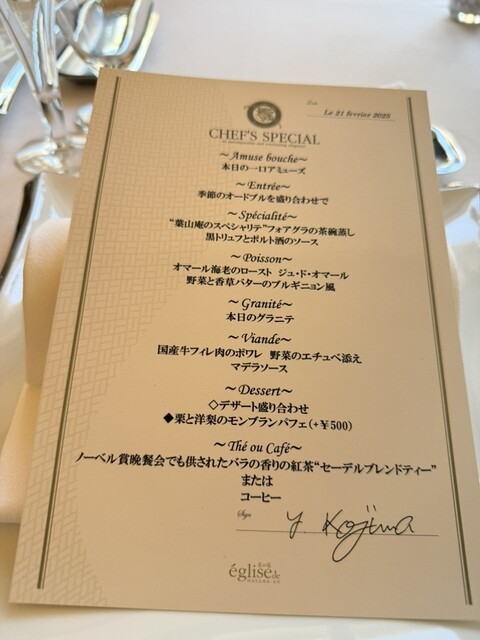 Le 21 fevrier 2025
CHEF'S SPECIAL
～Amuse bouche～
本日の一口アミューズ
～Entrée～
季節のオードブルを盛り合わせで
～Spécialité～
“葉山庵のスペシャリテ”フォアグラの茶碗蒸し
黒トリュフとポルト酒のソース
～Poisson～
オマール海老のロースト ジュ・ド・オマール
野菜と香草バターのブルギニョン風
～Granité～
本日のグラニテ
～Viande～
国産牛フィレ肉のポワレ 野菜のエチュベ添え
マデラソース
～Dessert～
◇デザート盛り合わせ
◆栗と洋梨のモンブランパフェ(+￥500)
～Thé ou Café～
ノーベル賞晩餐会でも供されたバラの香りの紅茶“セーデルブレンドティー”
または
コーヒー
Sign
Y. Kojima
église de